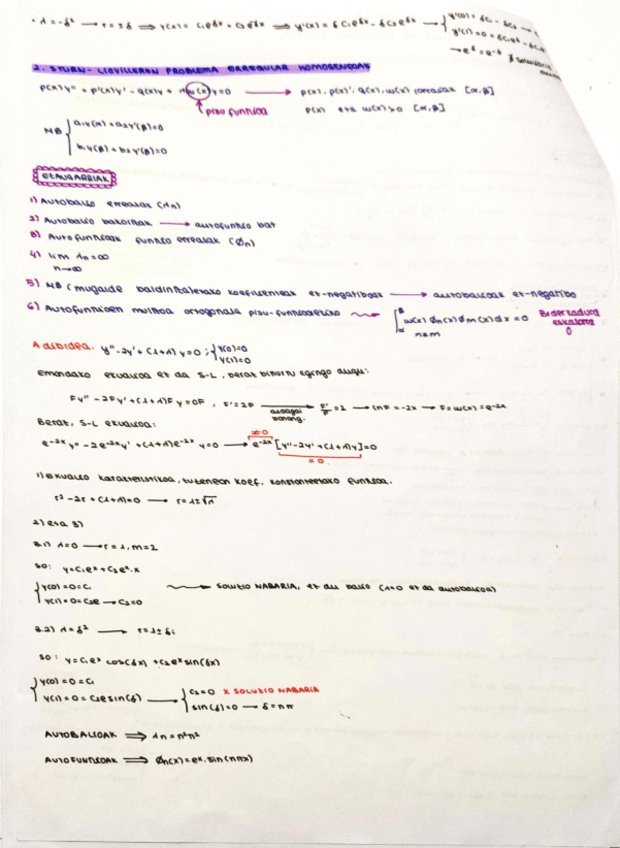 · λ=-δ² → r=±δ ⟹ y(x) = c₁e^δx + c₂e^-δx ⟹ y'(x) = δc₁e^δx - δc₂e^-δx → { y'(0) = δc₁ - δc₂
y'(1) = 0 = δc₁e^δ - δc₂
→ e^δ = e^-δ
2. STURN-LIOVILLEREN PROBLEMA ERREGULAR HOMOGENEOAK
p(x)y'' + p'(x)y' - q(x)y + λw(x)y=0 → p(x), p(x)', q(x), w(x) jarraiak [α,β]
↑ pisu funtzioa p(x) eta w(x)>0 [α,β]
MB { a₁y(α)+a₂y'(α)=0
b₁y(β)+b₂y'(β)=0
EZAUGARRIAK
1) Autobalio errealak (λn)
2) Autobalio bakoitzak → autofuntzio bat
3) Autofuntzioak funtzio errealak (Øn)
4) lim λn=∞
n→∞
5) MB (mugalde baldintza)etako koefizienteak ez-negatiboak → autobalioak ez-negatibo
6) Autofuntzioen multzoa ortogonala pisu-funtzioarekiko ⇝ ∫αβ w(x) Øn(x) Øm(x) dx = 0 Biderkadura eskalarra 0
n≠m
Adibidea. y''-2y'+(λ+1)y=0 ; { y(0)=0
y(1)=0
Emandako ekuazioa ez da S-L, beraz bihurtu egingo dugu:
Fy''-2Fy'+(λ+1)Fy=0F, F'=-2F → F'/F=-2 → lnF=-2x → F=w(x)=e^-2x
aldagai banang.
Beraz, S-L ekuazioa:
≠0
e^-2x y''-2e^-2x y'+(λ+1)e^-2x y=0 → e^-2x [y''-2y'+(λ+1)y]=0
=0
1) Ekuazio karakteristikoa, zuzenean koef. konstanteetako funtzioa.
r²-2r+(λ+1)=0 → r=1±√-λ
2) eta 3)
3.1) λ=0 → r=1, m=2
SO: y=c₁e^x+c₂e^x·x
{ y(0)=0=c₁ ⇝ SOLUZIO NABARIA, ez du balio (λ=0 ez da autobalioa)
y(1)=0=c₂e → c₂=0
3.2) λ=δ² → r=1±δi
SO: y=c₁e^x cos(δx)+c₂e^x sin(δx)
{ y(0)=0=c₁
y(1)=0=c₂e sin(δ) → { c₂=0 X SOLUZIO NABARIA
sin(δ)=0 → δ=nπ
AUTOBALIOAK ⟹ λn=n²π²
AUTOFUNTZIOAK ⟹ Øn(x)=e^x·sin(nπx)